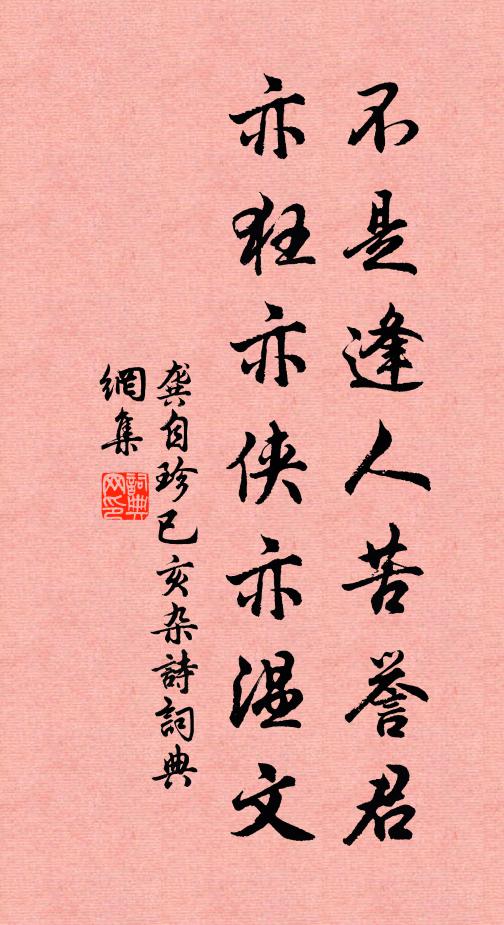 不是逢人苦誉君
亦狂亦侠亦温文
龚自珍己亥杂诗詞典
網集
詞典网印